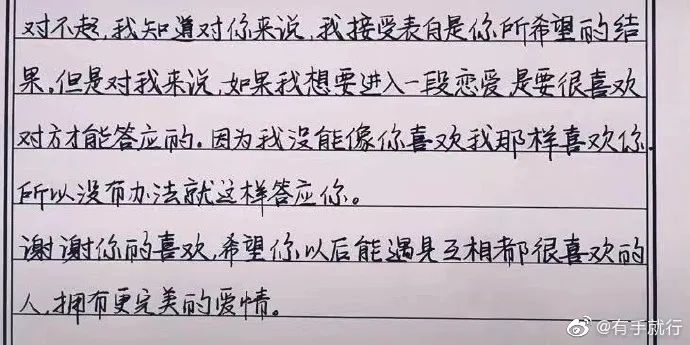 对不起,我知道对你来说,我接受表白是你所希望的结
果。但是对我来说,如果我想要进入一段恋爱,是要很喜欢
对方才能答应的。因为我没能像你喜欢我那样喜欢你,
所以没有办法就这样答应你。
谢谢你的喜欢,希望你以后能遇见互相都很喜欢的
人,拥有更完美的爱情。
@有手就行